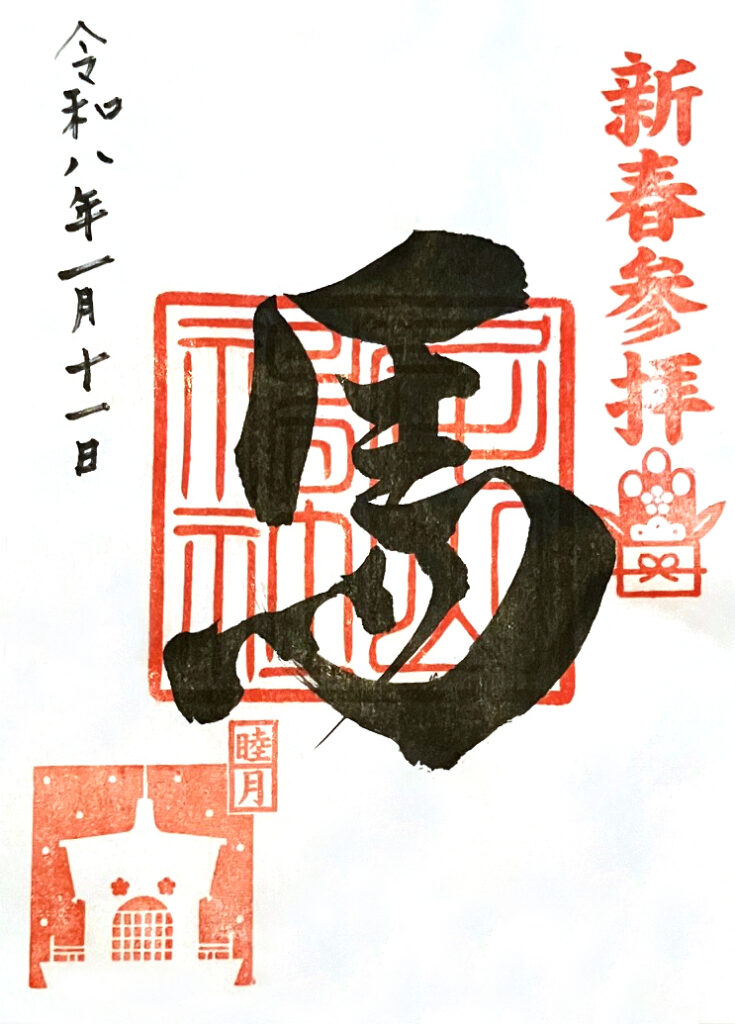 新春參拝
馬
睦月
令和八年一月十一日